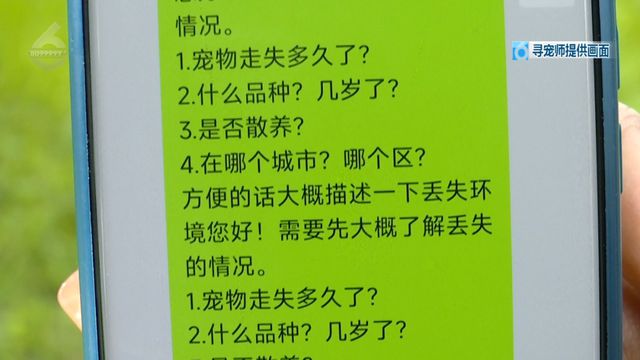 情况。
1.宠物走失多久了?
2.什么品种？几岁了？
3.是否散养？
4.在哪个城市？哪个区？
方便的话大概描述一下丢失环
境您好！需要先大概了解丢失
的情况。
1.宠物走失多久了？
2.什么品种？几岁了？
寻宠师提供画面